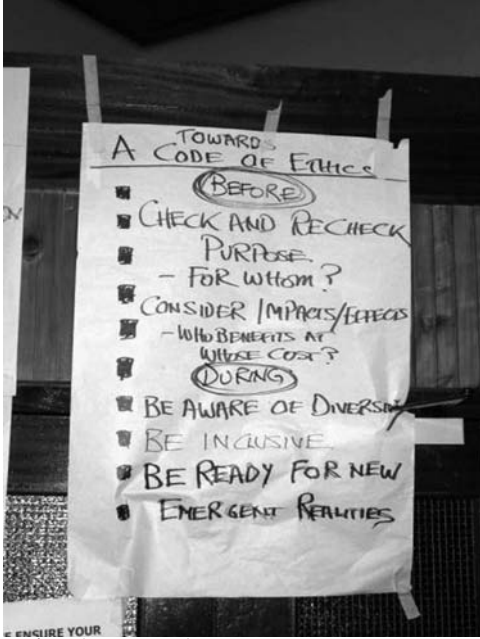 TOWARDS
A CODE OF ETHICS
BEFORE
CHECK AND RECHECK
PURPOSE.
- FOR WHOM?
CONSIDER IMPACTS/EFFECTS
- WHO BENEFITS AT
WHOSE COST?
DURING
BE AWARE OF DIVERSITY
BE INCLUSIVE.
BE READY FOR NEW
EMERGENT REALITIES
E ENSURE YOUR